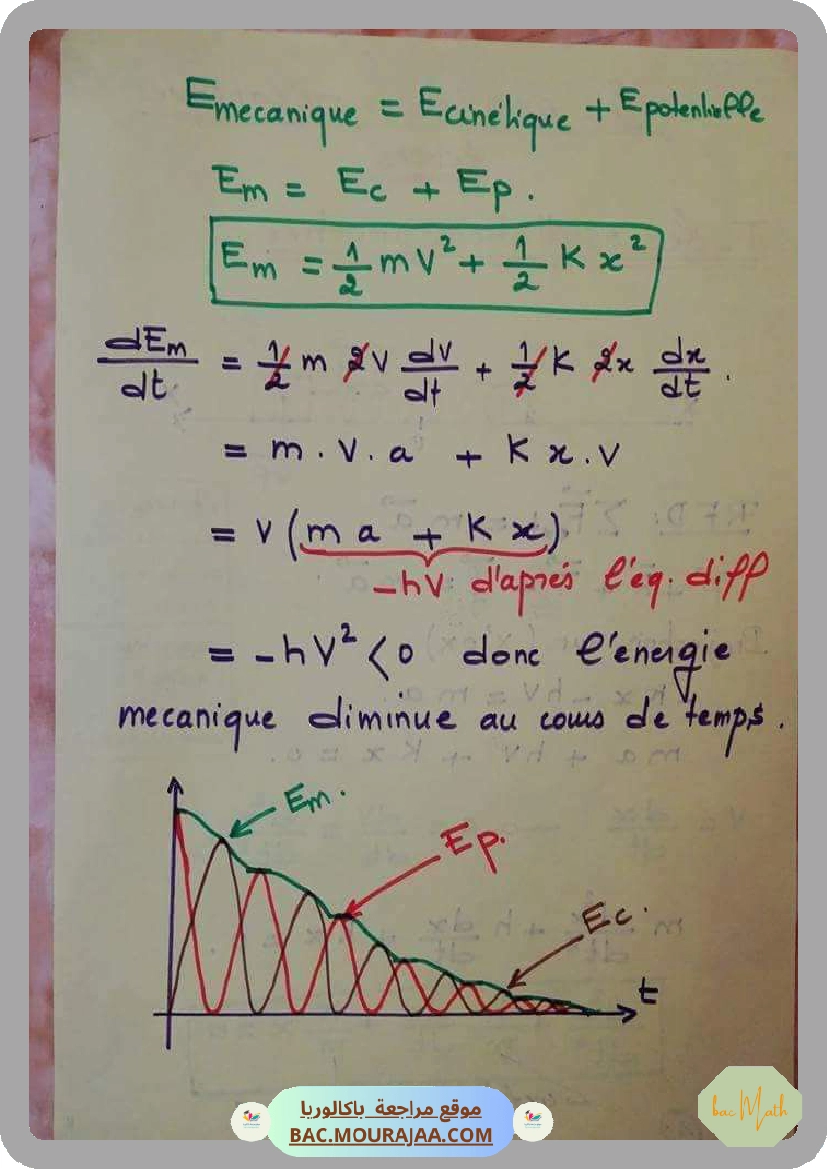 Emecanique = Ecinétique + Epotentielle
Em = Ec + Ep.
Em = 1/2 mV² + 1/2 K x²
dEm/dt = 1/2 m 2V dv/dt + 1/2 K 2x dx/dt.
= m . V . a + K x . V
= V (m a + K x)
-hV d'aprés l'éq. diff
= -hV² < 0 donc l'énergie
mecanique diminue au cours de temps.
Em.
Ep.
Ec.
t
موقع مراجعة باكالوريا
BAC.MOURAJAA.COM
bac Math